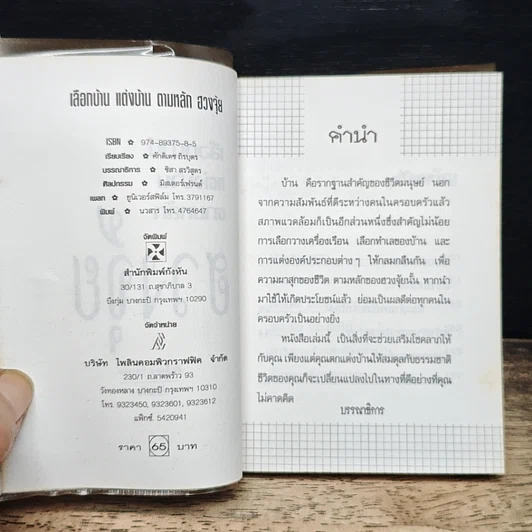 เลือกบ้าน แต่งบ้าน ตามหลัก ฮวงจุ้ย
ISBN ✿ 974-89375-8-5
เรียบเรียง ✿ ศักดิเดช ถิรบุตร
บรรณาธิการ ✿ ชิสา สรวิสูตร
ศิลปกรรม ✿ มิสเตอร์เฟรนด์
เพลท ✿ ยูนิเวอร์สฟิล์ม โทร. 3791167
พิมพ์ ✿ นวสาร โทร. 4764647
จัดพิมพ์
สำนักพิมพ์กังหัน
30/131 ถ.สุขาภิบาล 3
บึงกุ่ม บางกะปิ กรุงเทพฯ 10290
จัดจำหน่าย
บริษัท ไพลินคอมพิวกราฟฟิค จำกัด
230/1 ถ.ลาดพร้าว 93
วังทองหลาง บางกะปิ กรุงเทพฯ 10310
โทร. 9323450, 9323601, 9323612
แฟ็กซ์. 5420941
ราคา 65 บาท
คำนำ
บ้าน คือรากฐานสำคัญของชีวิตมนุษย์ นอก
จากความสัมพันธ์ที่ดีระหว่างคนในครอบครัวแล้ว
สภาพแวดล้อมก็เป็นอีกส่วนหนึ่งซึ่งสำคัญไม่น้อย
การเลือกวางเครื่องเรือน เลือกทำเลของบ้าน และ
การแต่งองค์ประกอบต่าง ๆ ให้กลมกลืนกัน เพื่อ
ความผาสุกของชีวิต ตามหลักของฮวงจุ้ยนั้น หากนำ
มาใช้ให้เกิดประโยชน์แล้ว ย่อมเป็นผลดีต่อทุกคนใน
ครอบครัวเป็นอย่างยิ่ง
หนังสือเล่มนี้ เป็นสิ่งที่จะช่วยเสริมโชคลาภให้
กับคุณ เพียงแต่คุณตกแต่งบ้านให้สมดุลกับธรรมชาติ
ชีวิตของคุณก็จะเปลี่ยนแปลงไปในทางที่ดีอย่างที่คุณ
ไม่คาดคิด
บรรณาธิการ